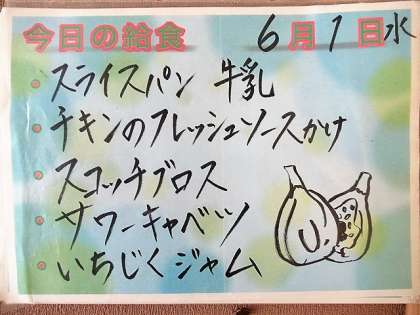 今日の給食 6月1日水
スライスパン 牛乳
チキンのフレッシュソースかけ
スコッチブロス
サワーキャベツ
いちじくジャム